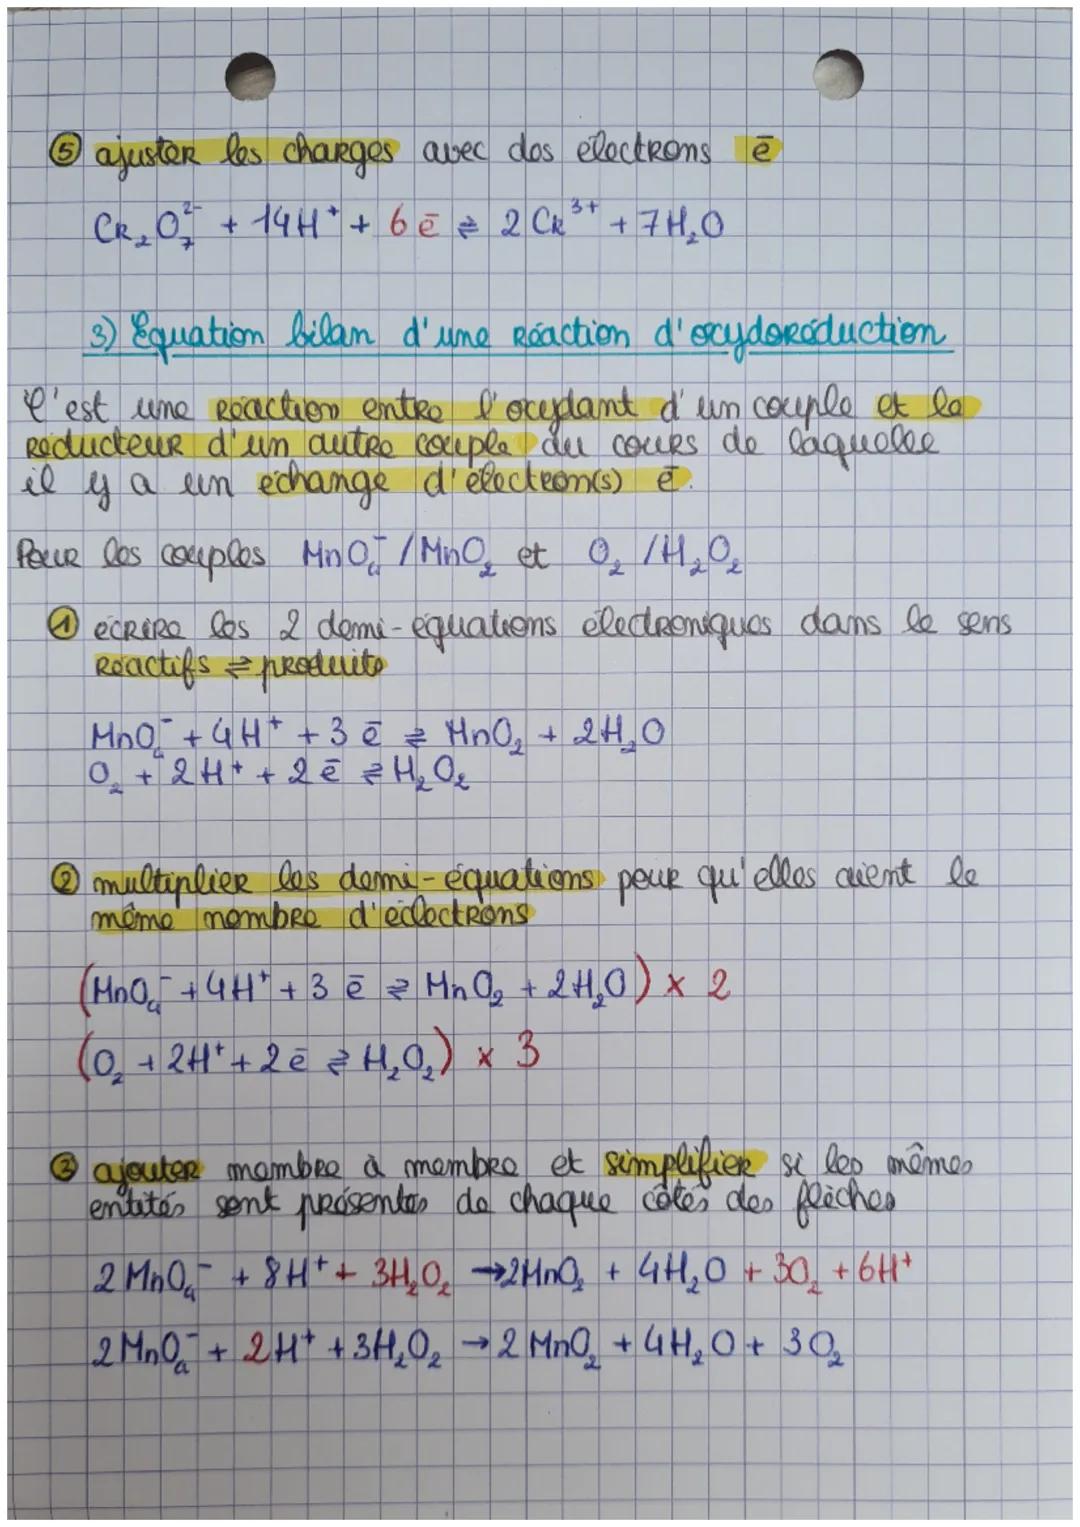 ⑤ ajuster les charges avec des électrons ē
Cr₂O₇²⁻ + 14H⁺ + 6ē ⇌ 2Cr³⁺ + 7H₂O
3) Equation bilan d'une réaction d'oxydoréduction
C'est une réaction entre l'oxydant d'un couple et le
réducteur d'un autre couple du cours de laquelle
il y a un échange d'électron(s) ē.
Pour les couples MnO₄⁻/MnO₂ et O₂/H₂O₂
① écrire les 2 demi-équations électroniques dans le sens
réactifs ⇌ produits
MnO₄⁻ + 4H⁺ + 3ē ⇌ MnO₂ + 2H₂O
O₂ + 2H⁺ + 2ē ⇌ H₂O₂
② multiplier les demi-équations pour qu'elles aient le
même nombre d'éclectrons
(MnO₄⁻ + 4H⁺ + 3ē ⇌ MnO₂ + 2H₂O) × 2
(O₂ + 2H⁺ + 2ē ⇌ H₂O₂) × 3
③ ajouter membre à membre et simplifier si les mêmes
entités sont présentes de chaque côtés des flèches
2MnO₄⁻ + 8H⁺ + 3H₂O₂ → 2MnO₂ + 4H₂O + 3O₂ + 6H⁺
2MnO₄⁻ + 2H⁺ + 3H₂O₂ → 2MnO₂ + 4H₂O + 3O₂